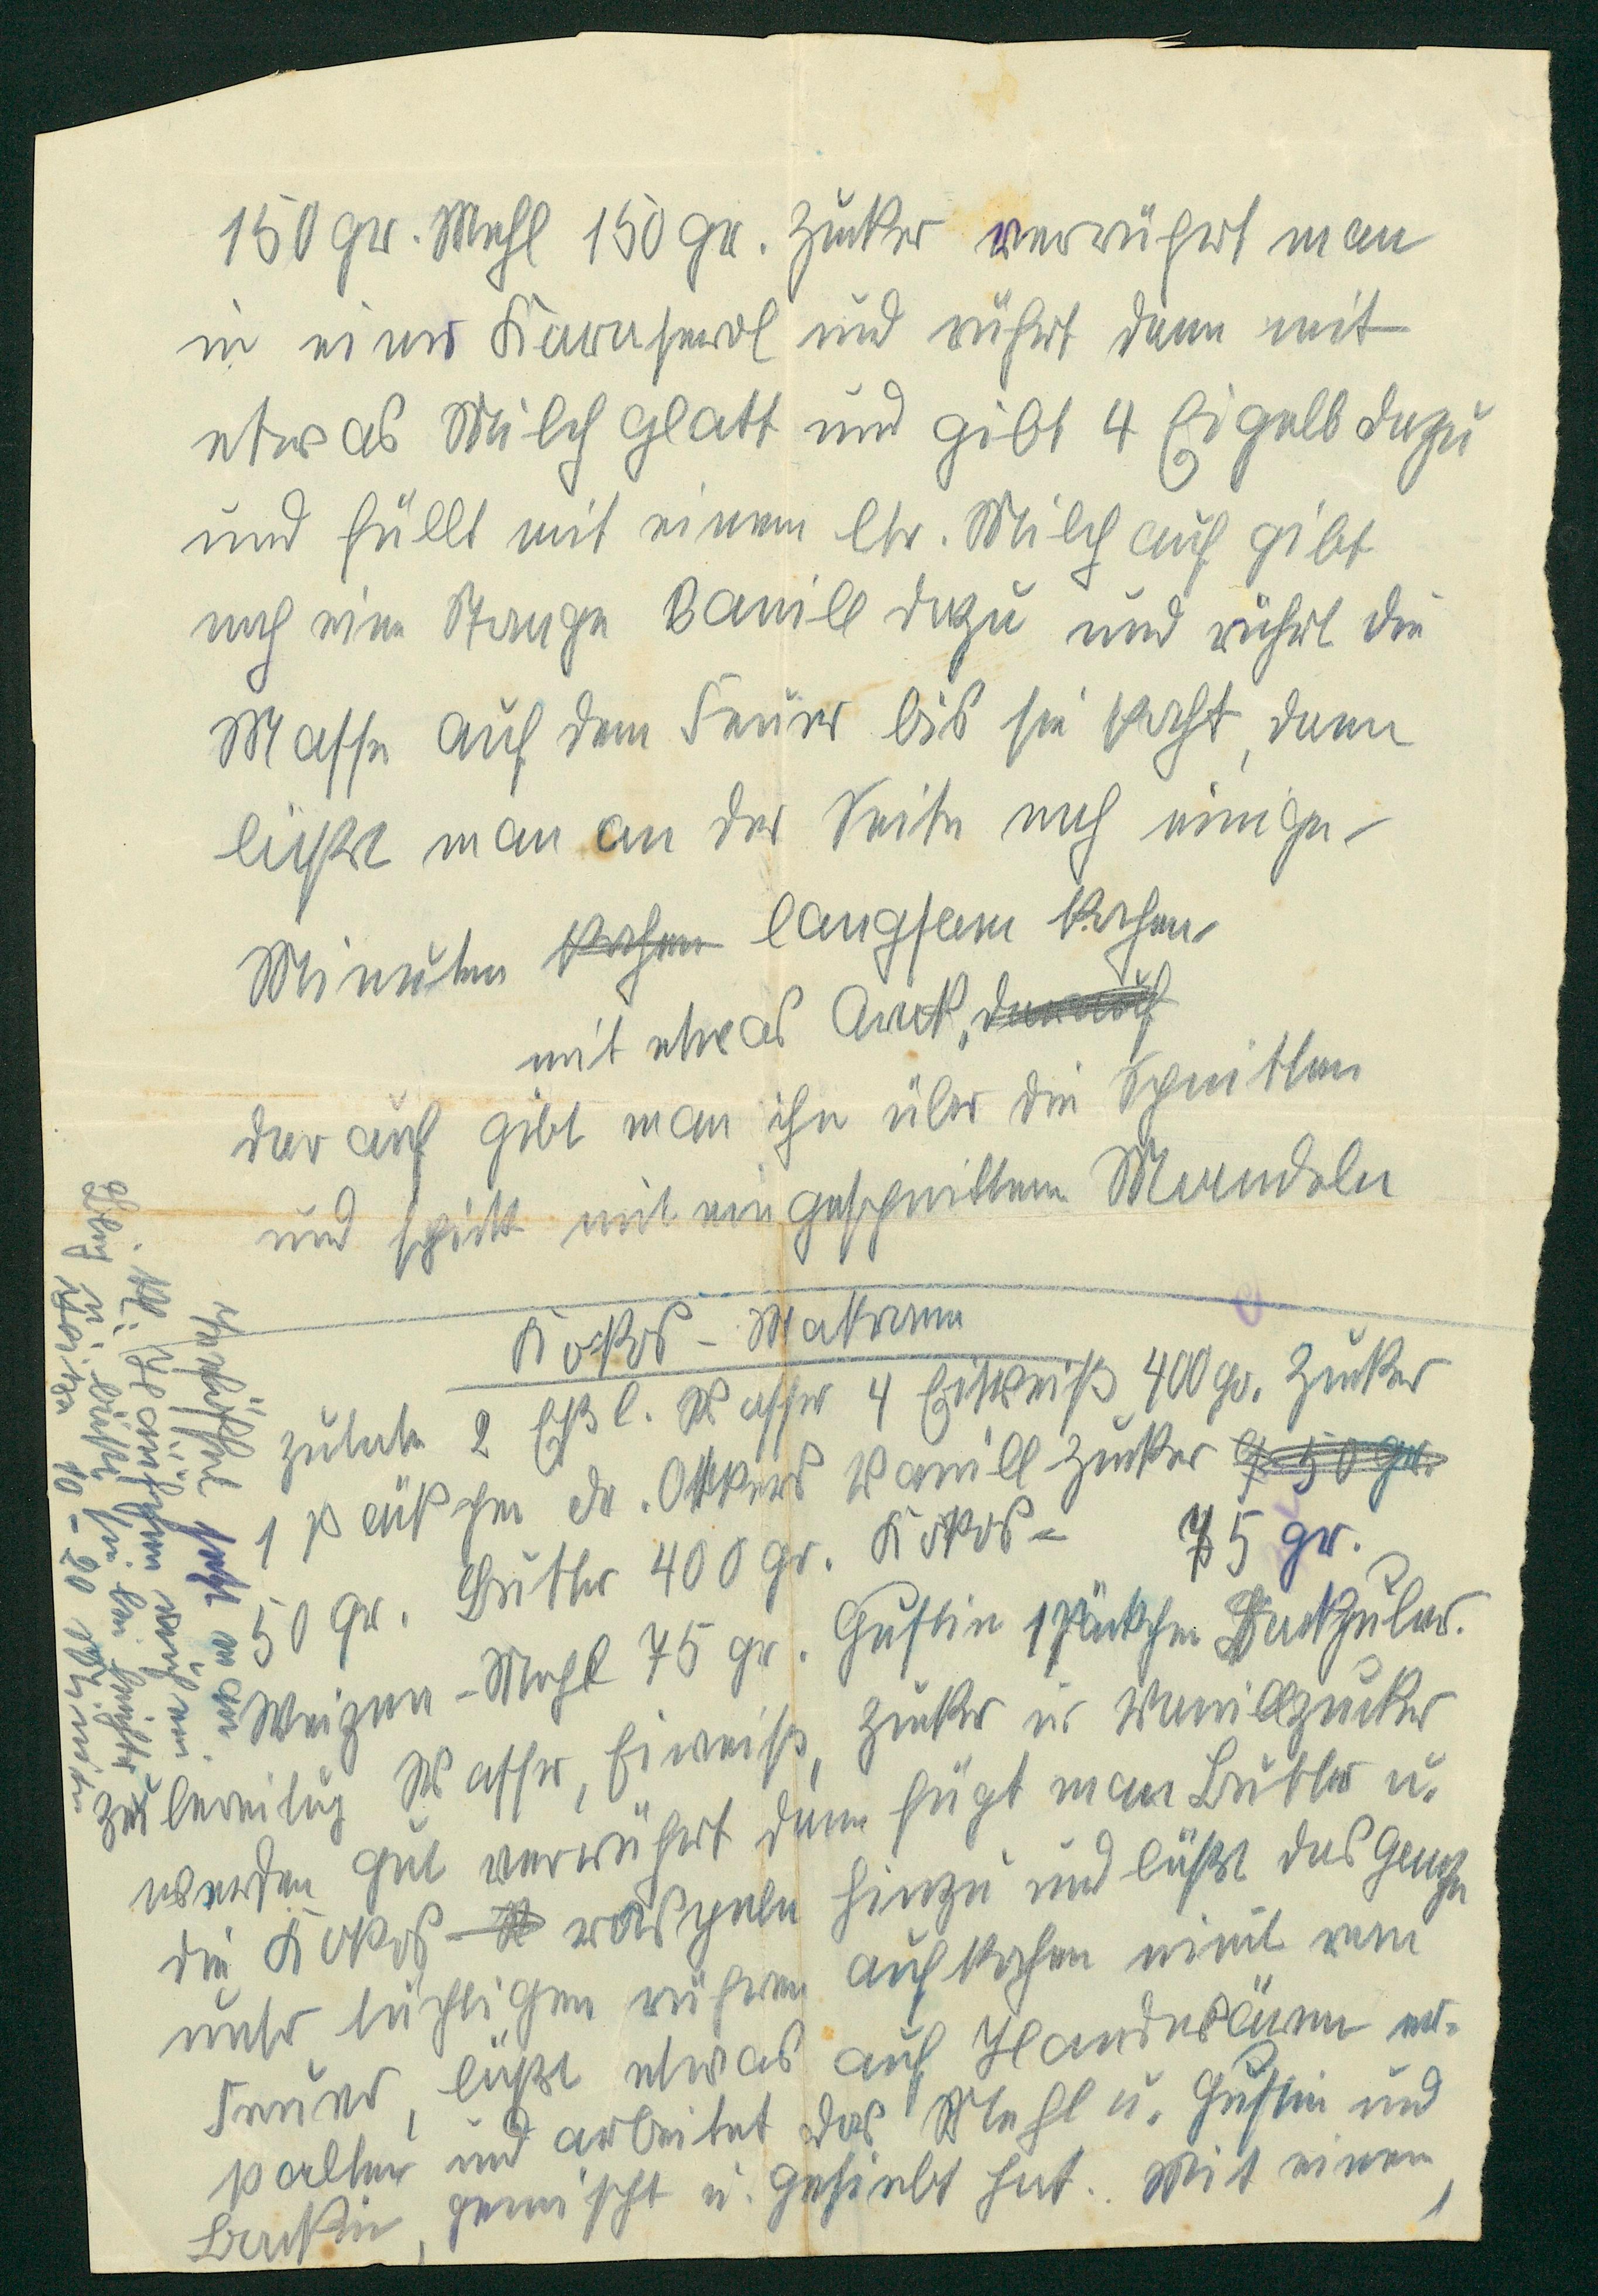 150 gr. Mehl 150 gr. Zucker verrührt man
in einer Kasserol und rührt dann mit
etwas Milch glatt und gibt 4 Eigelb dazu
und füllt mit einem ltr. Milch auf gibt
noch eine Stange Vanill dazu und rührt die
Masse auf dem Feuer bis sie kocht, dann
läßst man an der Seite noch einige
Minuten kochen langsam kochen
mit etwas Arak, darauf
darauf gibt man ihn über die Schnitten
und spickt mit eingeschnittene Mandeln
Kokos - Makronen
Zutate 2 Eßl. Wasser 4 Eiweiß 400 gr. Zucker
1 Päckchen Dr. Oetkers Vanill Zucker 50 gr.
50 gr. Butter 400 gr. Kokos - 75 gr.
Weizen - Mehl 75 gr. Gustin 1 Päckchen Backpulver.
Zubereitug Wasser, Eiweiß, Zucker u Vanillzucker
werden gut verrührt dann fügt man Butter u.
die Kokos - raspeln hinzu und läßst das Ganze
unter tüchtigen rühren aufkochen nimt vom
Feuer, läßst etwas auf Handwärme er-
kalten und arbeitet das Mehl u. Gustin und
Backin, gemischt u. gesiebt hat. Mit einem
Teelöffel setzt man
10 - 20 Minuten